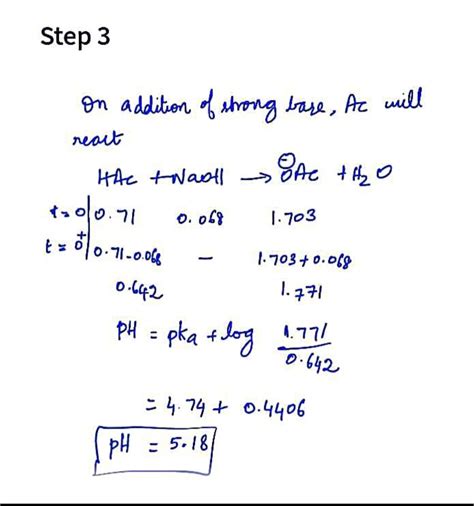 Step 3
On addition of strong base, Ac will
react
HAc + NaOH → ⊖OAc + H2O
t = 0 0.71 0.068 1.703
t = 0+ 0.71-0.068 – 1.703+0.068
0.642 1.771
pH = pka + log 1.771/0.642
= 4.74 + 0.4406
pH = 5.18